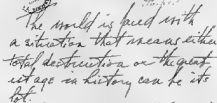 The world is faced with
a situation that means either
total destruction or the great
est age in history can be its
lot.